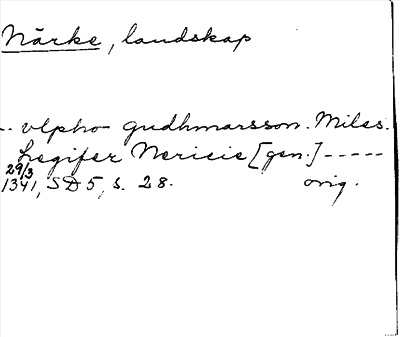 Närke, landskap
-- vlpho gudhmarsson. Miles.
Legifer Nericie [gen.] -----
29/3
1341, SD 5, s. 28. orig.